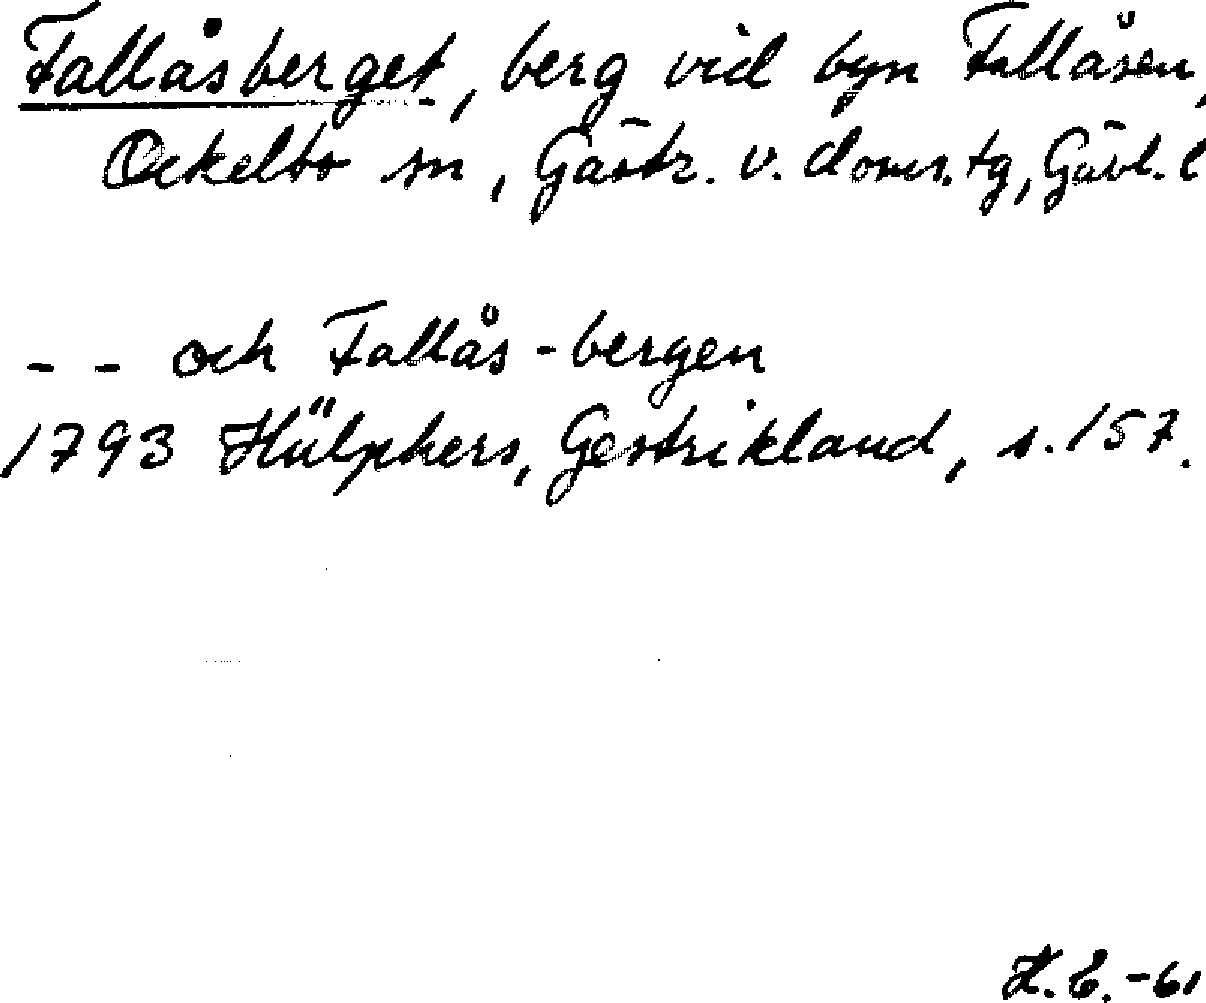 Fallåsberget, berg vid byn Fallåsen,
Ockelbo sn, Gästr. v. doms. tg, Gävl. l
- - och Fallås-bergen
1793 Hülphers, Gestrikland, s. 157.
H. E. -61